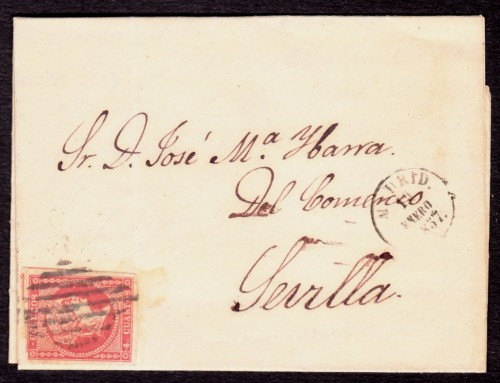 Sr. D. José Mª Ybarra
Del Comercio
Sevilla.
MADRID.
ENERO
857.
CORREOS
4 CUART